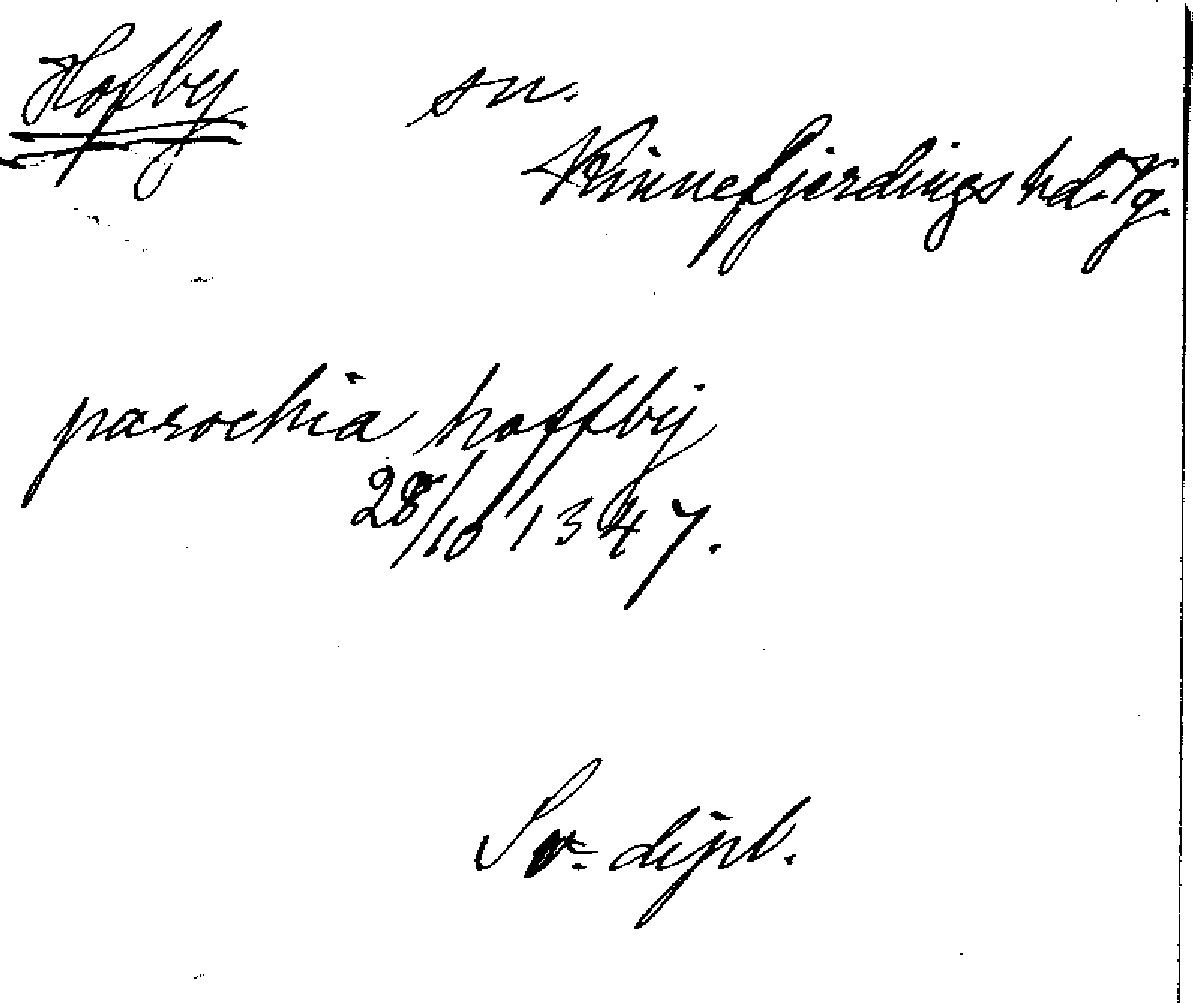 Hofby sn.
Kinnefjerdings hd. Vg.
parochia hoffby
28/10 1347.
Sv. dipl.